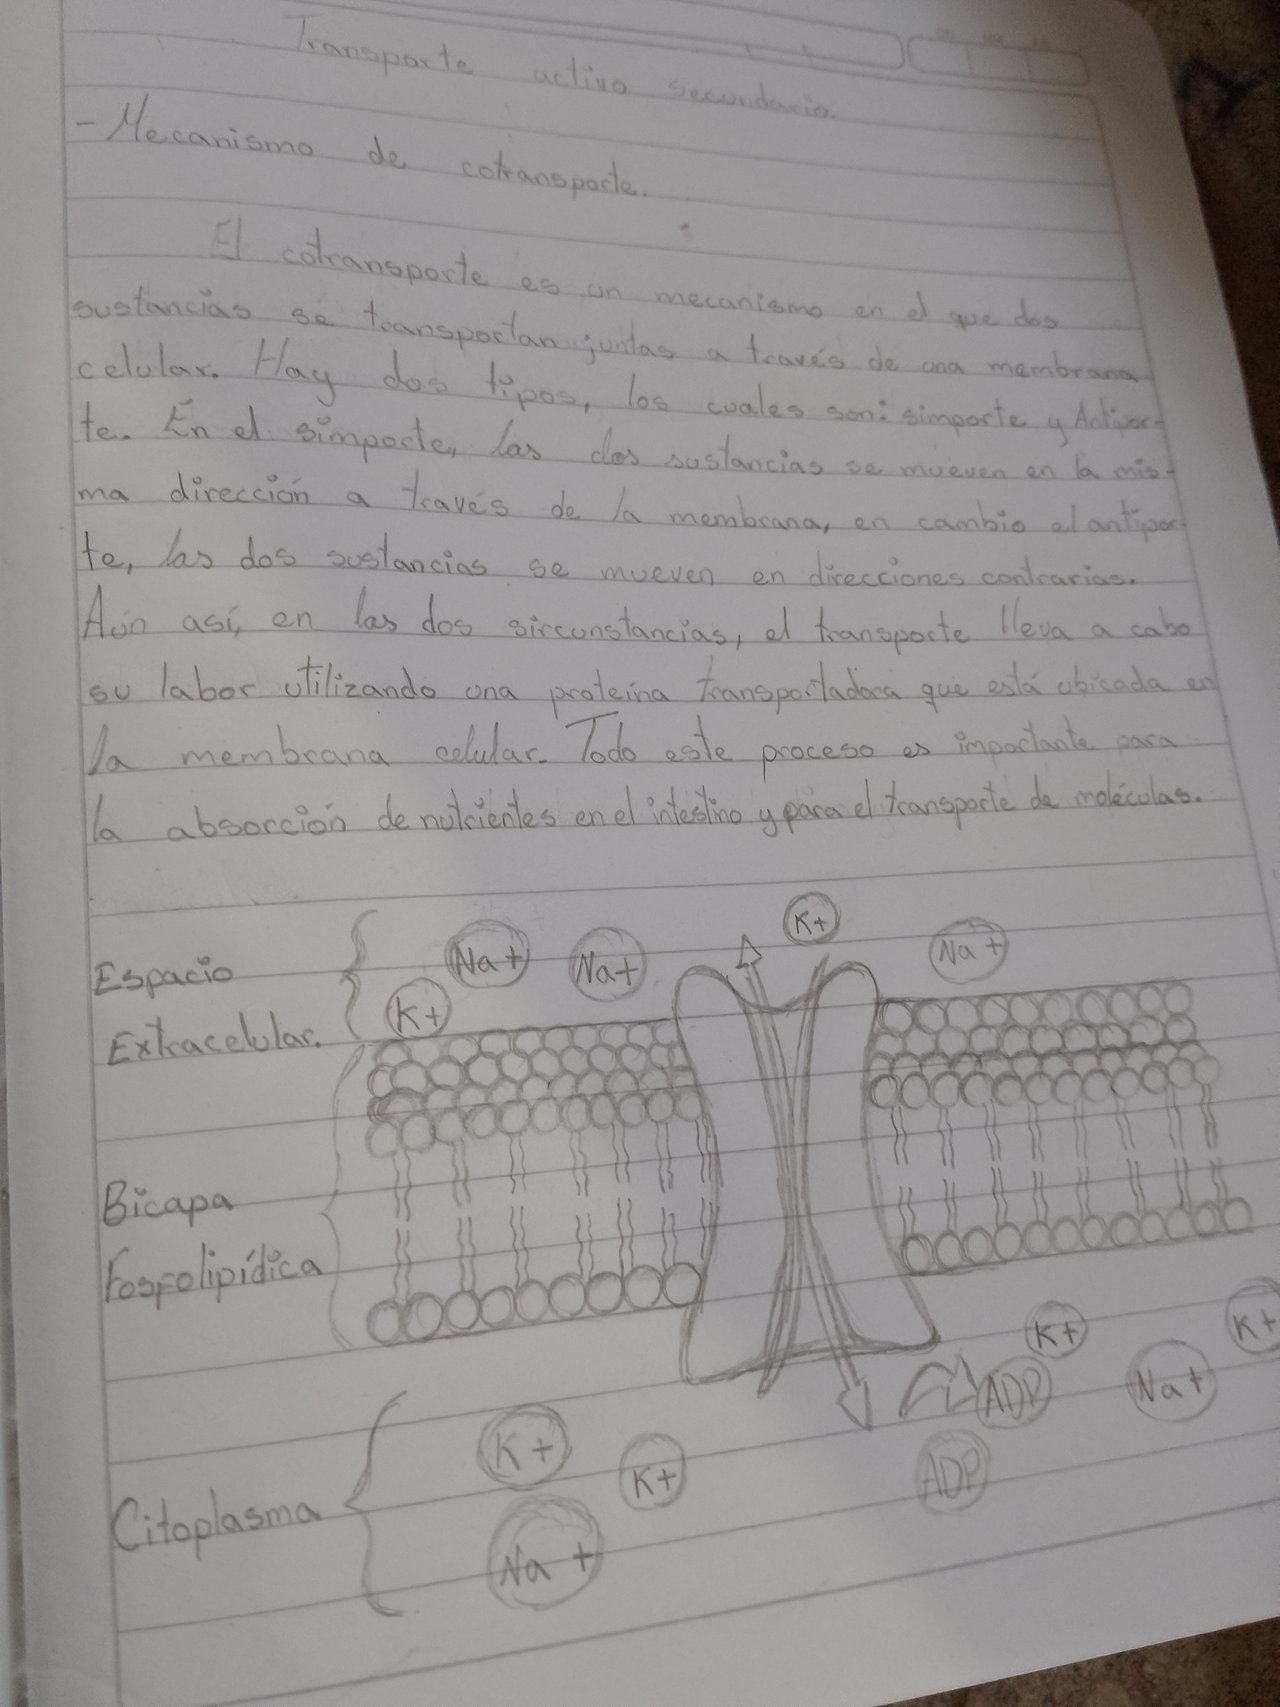 Transporte activo secundario.
- Mecanismo de cotransporte.
El cotransporte es un mecanismo en el que dos
sustancias se transportan juntas a través de una membrana
celular. Hay dos tipos, los cuales son: simporte y Antipor-
te. En el simporte, las dos sustancias se mueven en la mis-
ma dirección a través de la membrana, en cambio el antipor-
te, las dos sustancias se mueven en direcciones contrarias.
Aún así, en las dos sircunstancias, el transporte lleva a cabo
su labor utilizando una proteína transportadora que está ubicada en
la membrana celular. Todo este proceso es importante para
la absorción de nutrientes en el intestino y para el transporte de moléculas.
K+
Na+ Na+ Na+
Espacio
K+
Extracelular.
Bicapa
Fosfolipídica
K+ K+
ADP Na+
K+ K+
ADP
Citoplasma
Na+